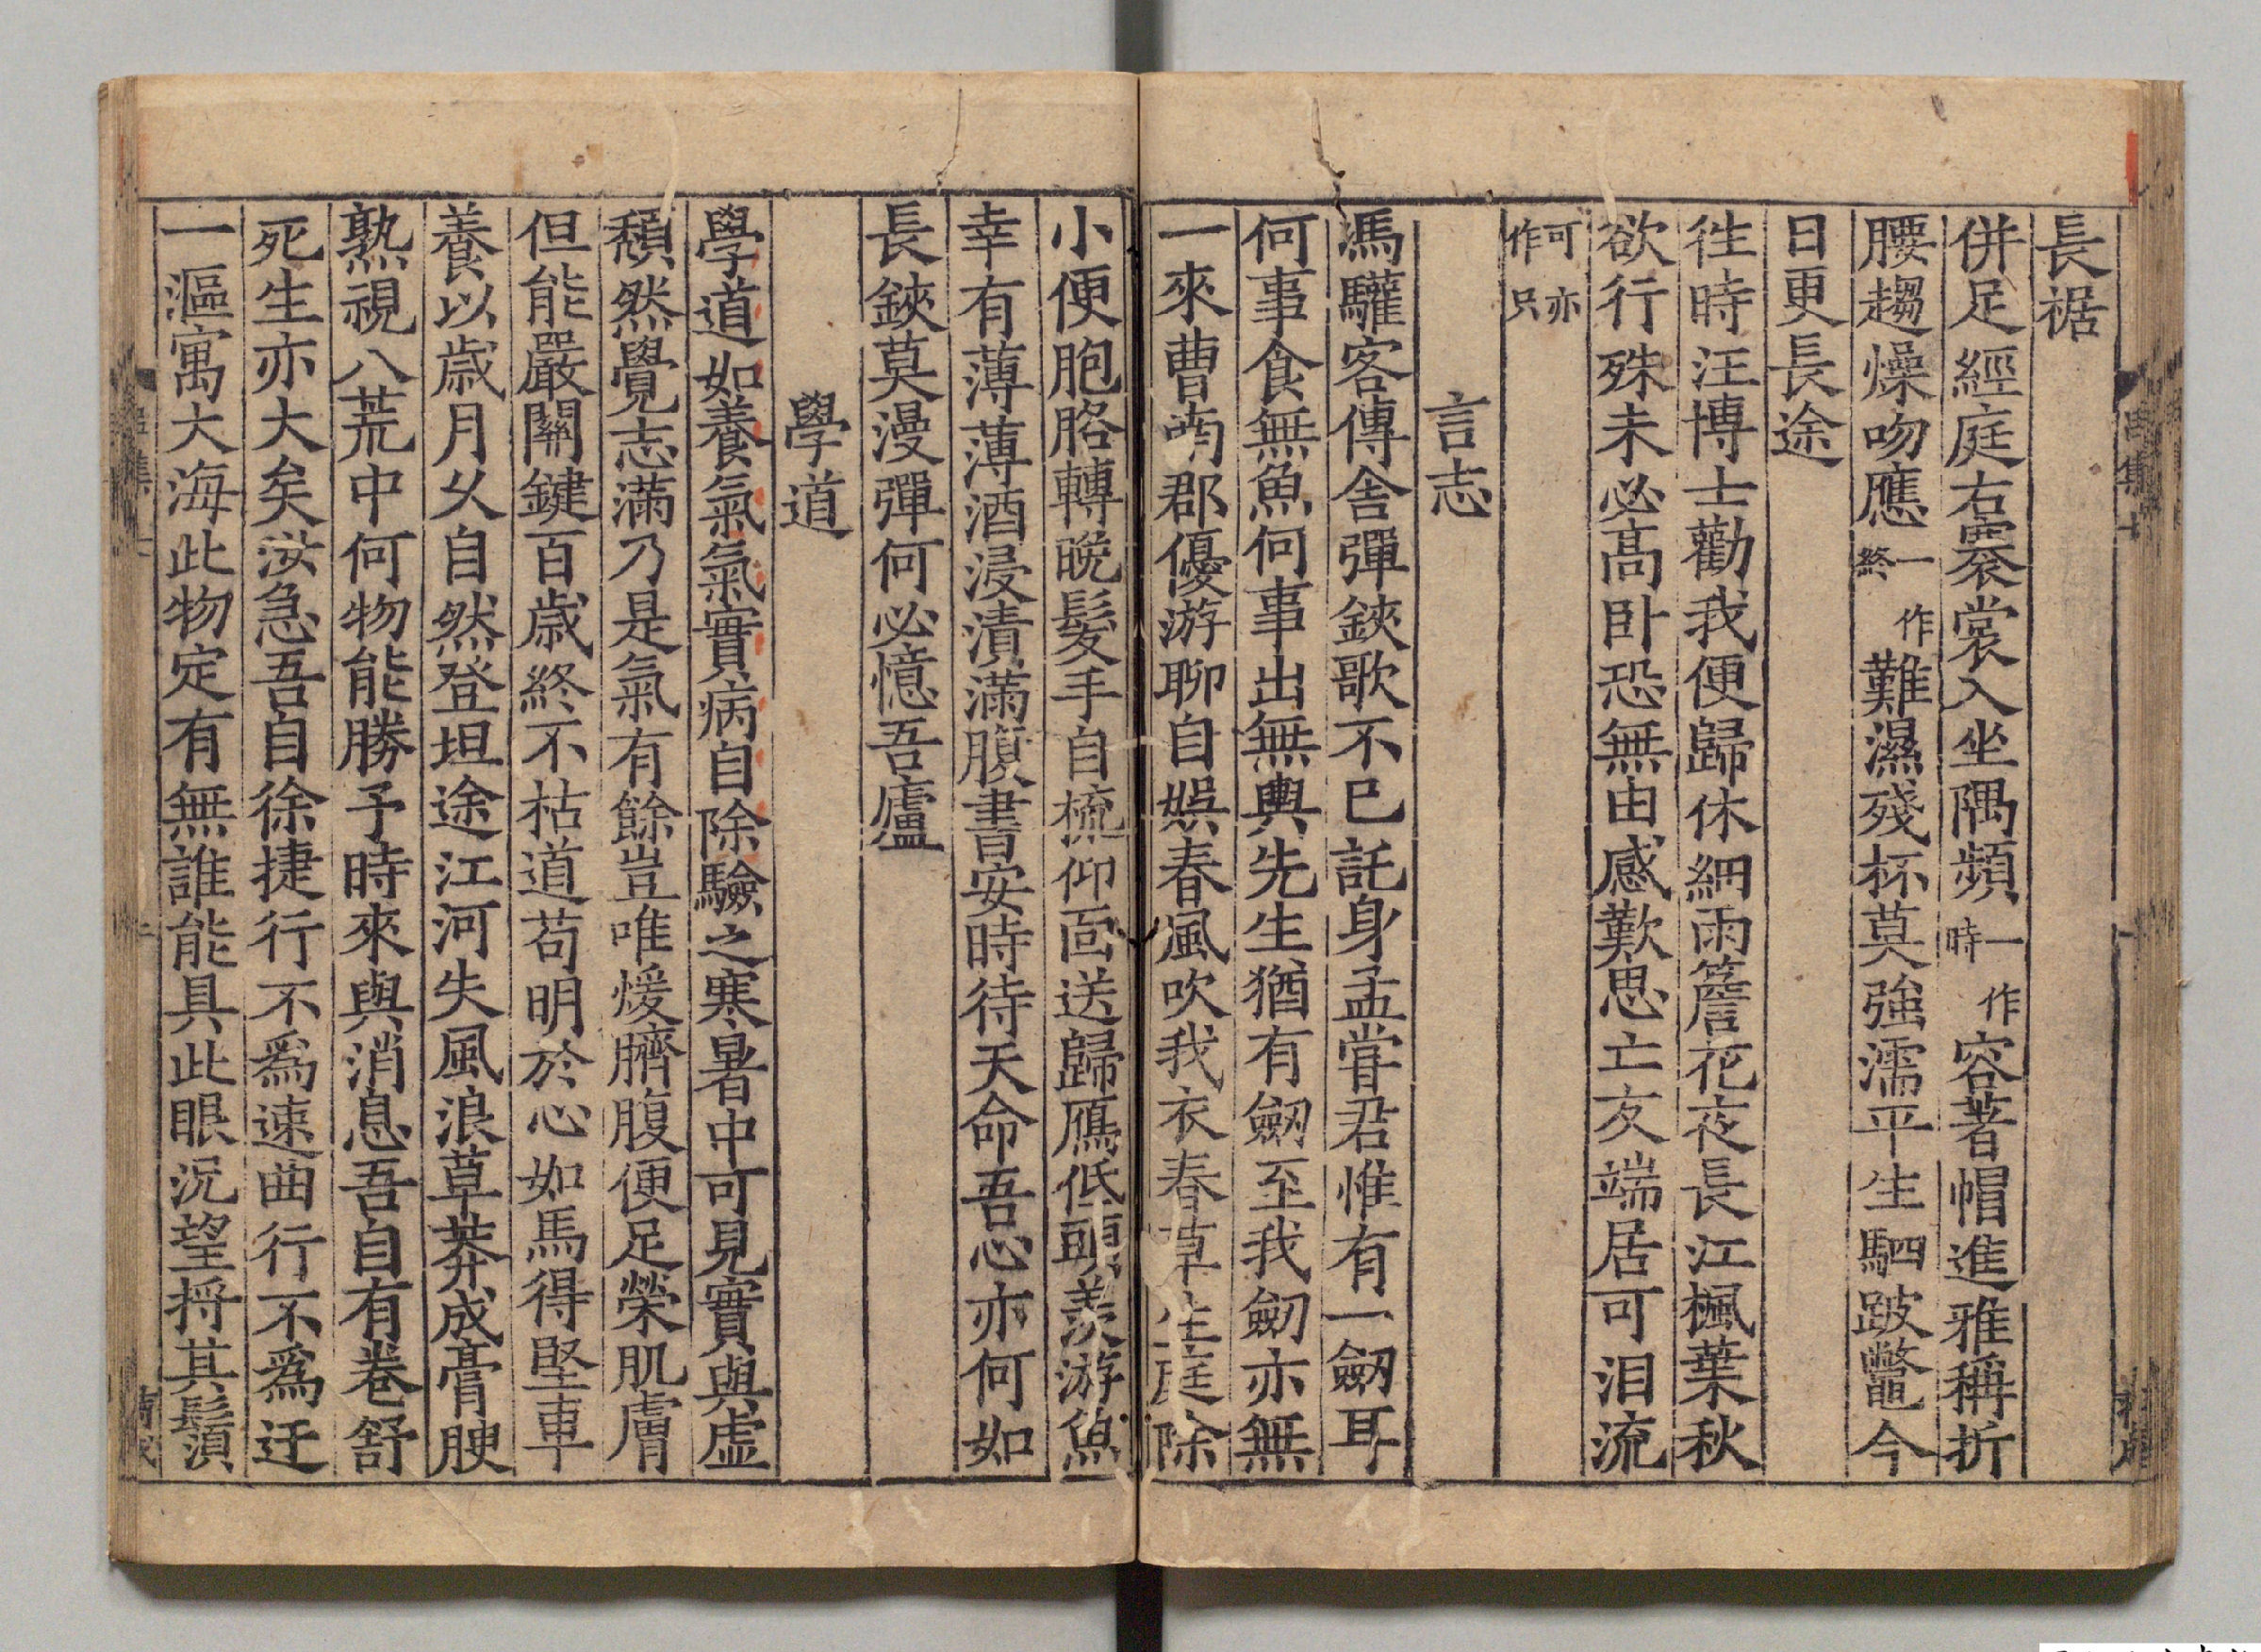 長裾
併足經庭右褰裳入坐隅頻一作時容著帽進雅稱折
腰趨燥吻應一作終難濕殘杯莫強濡平生駟跛鼈今
日更長途
徃時汪博士勸我便歸休細雨簷花夜長江楓葉秋
欲行殊未必高卧恐無由感歎思亡友端居可泪流
可亦作只
言志
馮驩客傳舍彈鋏歌不已託身孟甞君惟有一劒耳
何事食無魚何事出無輿先生猶有劒至我劒亦無
一來曹南郡優游聊自娯春風吹我衣春草生庭除
小便胞胳轉晩髮手自梳仰面送歸鴈低頭羨游魚
幸有薄薄酒浸漬滿腹書安時待天命吾心亦何如
長鋏莫漫彈何必憶吾廬
學道
學道如養氣氣實病自除驗之寒暑中可見實與虛
頽然覺志滿乃是氣有餘豈唯煖臍腹便足榮肌膚
但能嚴關鍵百歲終不枯道苟明於心如馬得堅車
養以歲月久自然登坦途江河失風浪草莽成膏腴
熟視八荒中何物能勝予時來與消息吾自有卷舒
死生亦大矣汝急吾自徐捷行不爲速曲行不爲迂
一漚寓大海此物定有無誰能具此眼況望捋其鬚